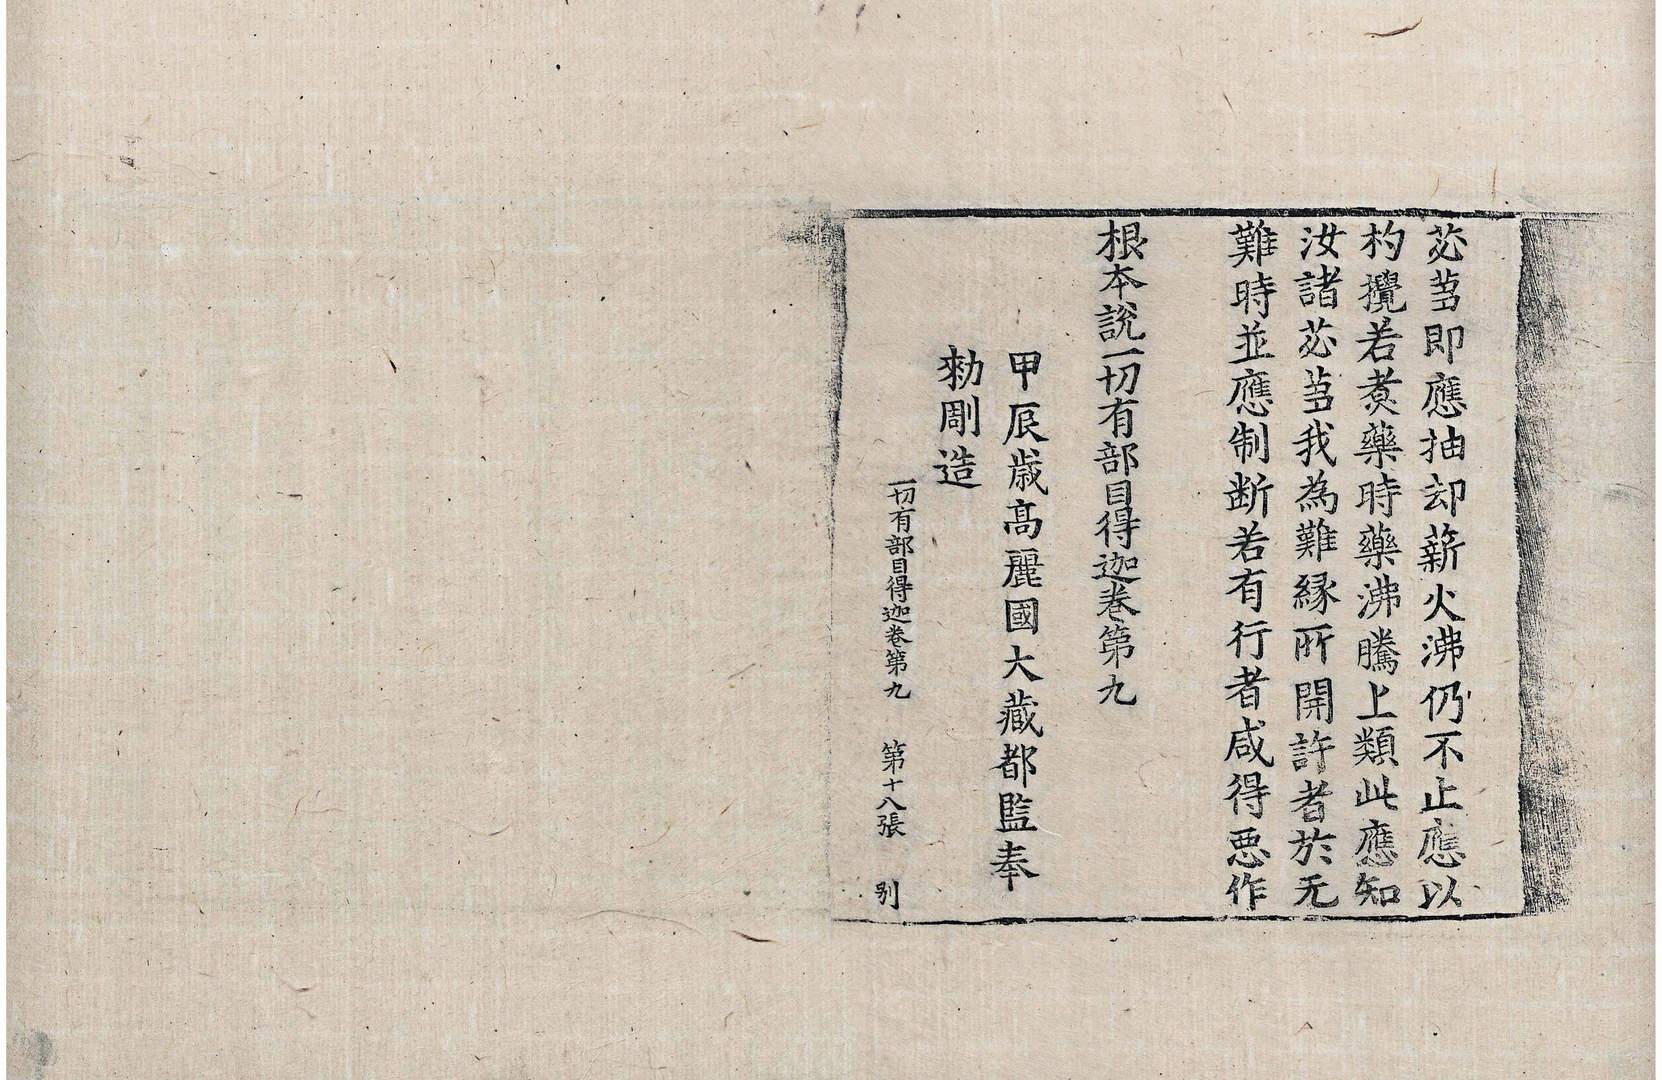 苾芻即應抽却薪火沸仍不止應以
杓攪若煑藥時藥沸騰上類此應知
汝諸苾芻我為難縁所開許者於无
難時並應制断若有行者咸得悪作
根本說一切有部目得迦卷第九
甲辰歳髙麗國大藏都監奉
勑彫造
一切有部目得迦卷第九 第十八張 别